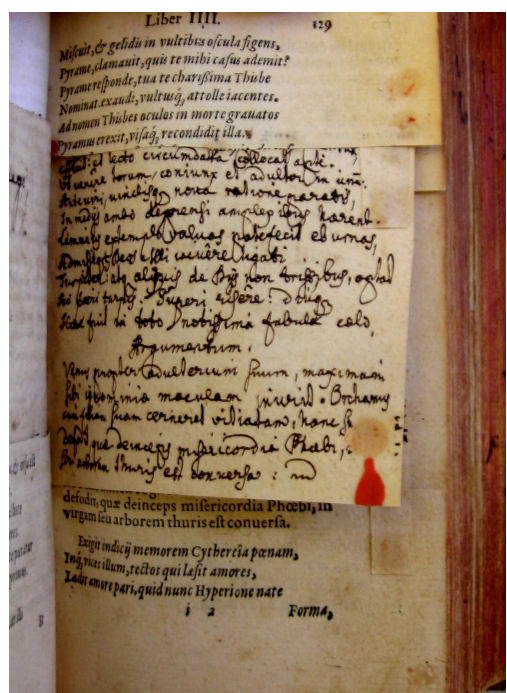 Liber IIII. 129
Miscuit, & gelidis in vultibus oscula figens,
Pyrame, clamauit, quis te mihi casus ademit?
Pyrame responde, tua te charißima Thisbe
Nominat. exaudi, vultusq́; attolle iacentes.
Ad nomen Thisbes oculos in morte grauatos
Pyramus erexit, visaq́; recondidit illa.
lecto circumdata collocat arte.
torum, coniunx et adulter in unū.
Arte viri, vinclisq; nova ratione paratis,
In medijs ambo deprensi amplexibus hærent.
Lemnius extemplo valvas patefecit eburnas,
Admisitq; Deos: illi iacuêre ligati
Turpiter: atq; aliquis de Dijs non tristibus, optat
Sic fieri turpis. Superi risêre: diuq;
Hæc fuit in toto notissima fabula cœlo,
Argumentum.
Venus propter adulterium suum, maximam
sibi ignominiæ maculam inurit. Orchamus
suam cerneret vitiatam, hanc
defodit, quæ deinceps misericordia Phœbi,
seu arborem thuris est conversa: in
defodit, quæ deinceps misericordia Phœbi, in
virgam seu arborem thuris est conuersa.
Exigit indicij memorem Cythereïa pœnam,
Inq́; vices illum, tectos qui læsit amores,
Lædit amore pari, quid nunc Hyperione nate
i 2 Forma,